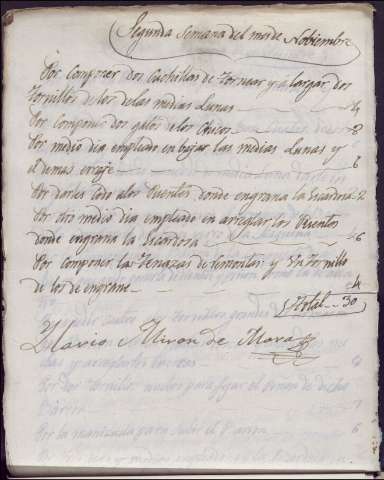 Segunda Semana del mes de Nobiembre
Por componer dos Cuchillas de tornear y alargar dos
tornillos delos delas medias Lunas 4
Por componer dos gatos delos Chicos 8
Por medio dia empleado en bajar las medias Lunas y
el demas erraje 6
Por darles lado alos Puentes donde engrana la Sacadora 2
Por otro medio dia empleado en arreglar los Puentes
donde engrana la Sacadora 6
Por componer las tenazas de y Un tornillo
de los de engrane 4
Total 30
Miron de Mora